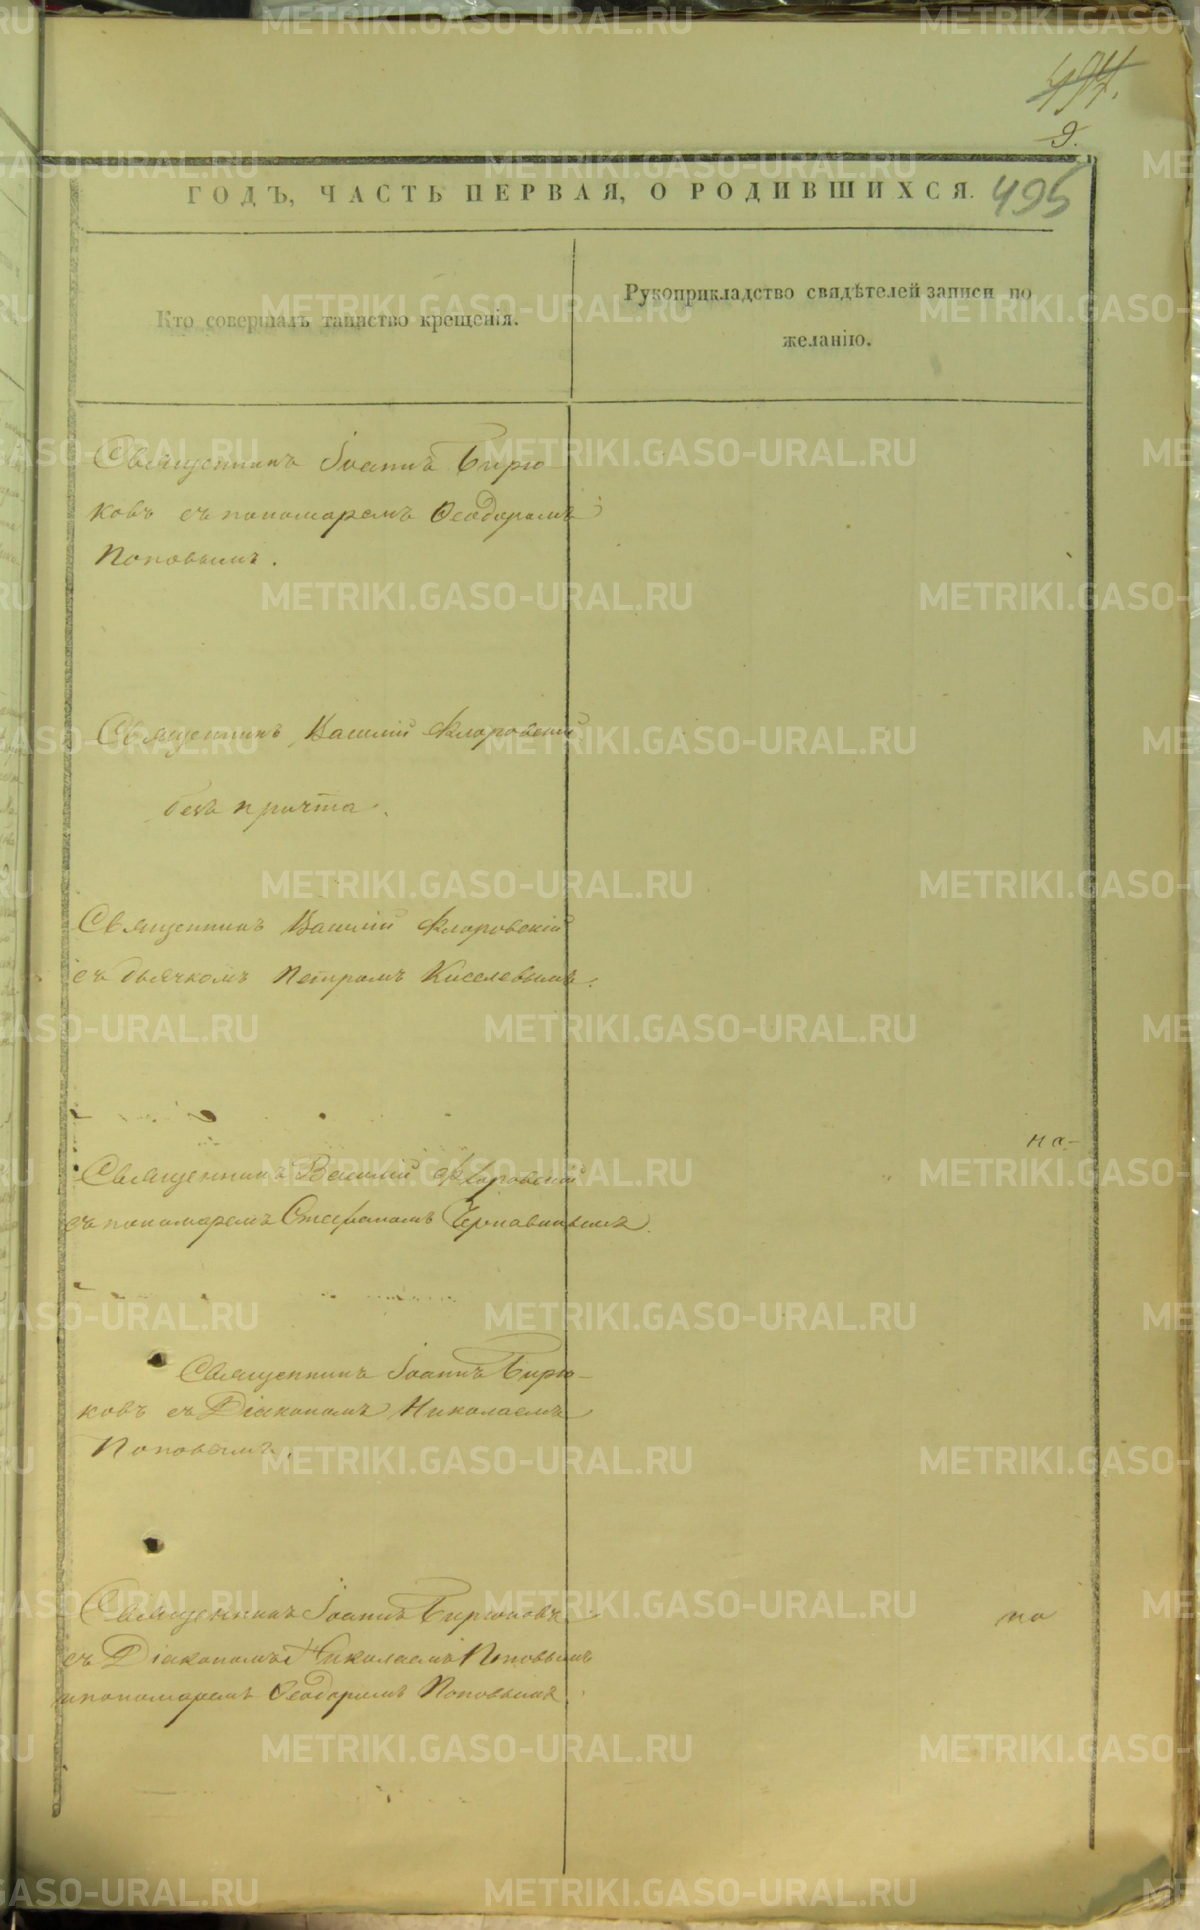 494.
9.
ГОДЪ, ЧАСТЬ ПЕРВАЯ, О РОДИВШИХСЯ.
495
Кто совершалъ таинство крещенія.
Рукоприкладство свидѣтелей записи по
желанію.
Священникъ Іоаннъ Бирю
ковъ съ пономаремъ Ѳеодоромъ
Поповымъ.
Священникъ Василій Флоровскій
безъ причта.
Священникъ Василій Флоровскій
съ дьячкомъ Петромъ Киселевымъ.
на-
Священникъ Василій Флоровскій
съ пономаремъ Стефаномъ Чернавинымъ.
Священникъ Іоаннъ Бирю-
ковъ съ Діакономъ Николаемъ
Поповымъ.
Священникъ Іоаннъ Бирюковъ
по
съ Діакономъ Николаемъ Поповымъ
и пономаремъ Ѳеодоромъ Поповымъ.
METRIKI.GASO-URAL.RU